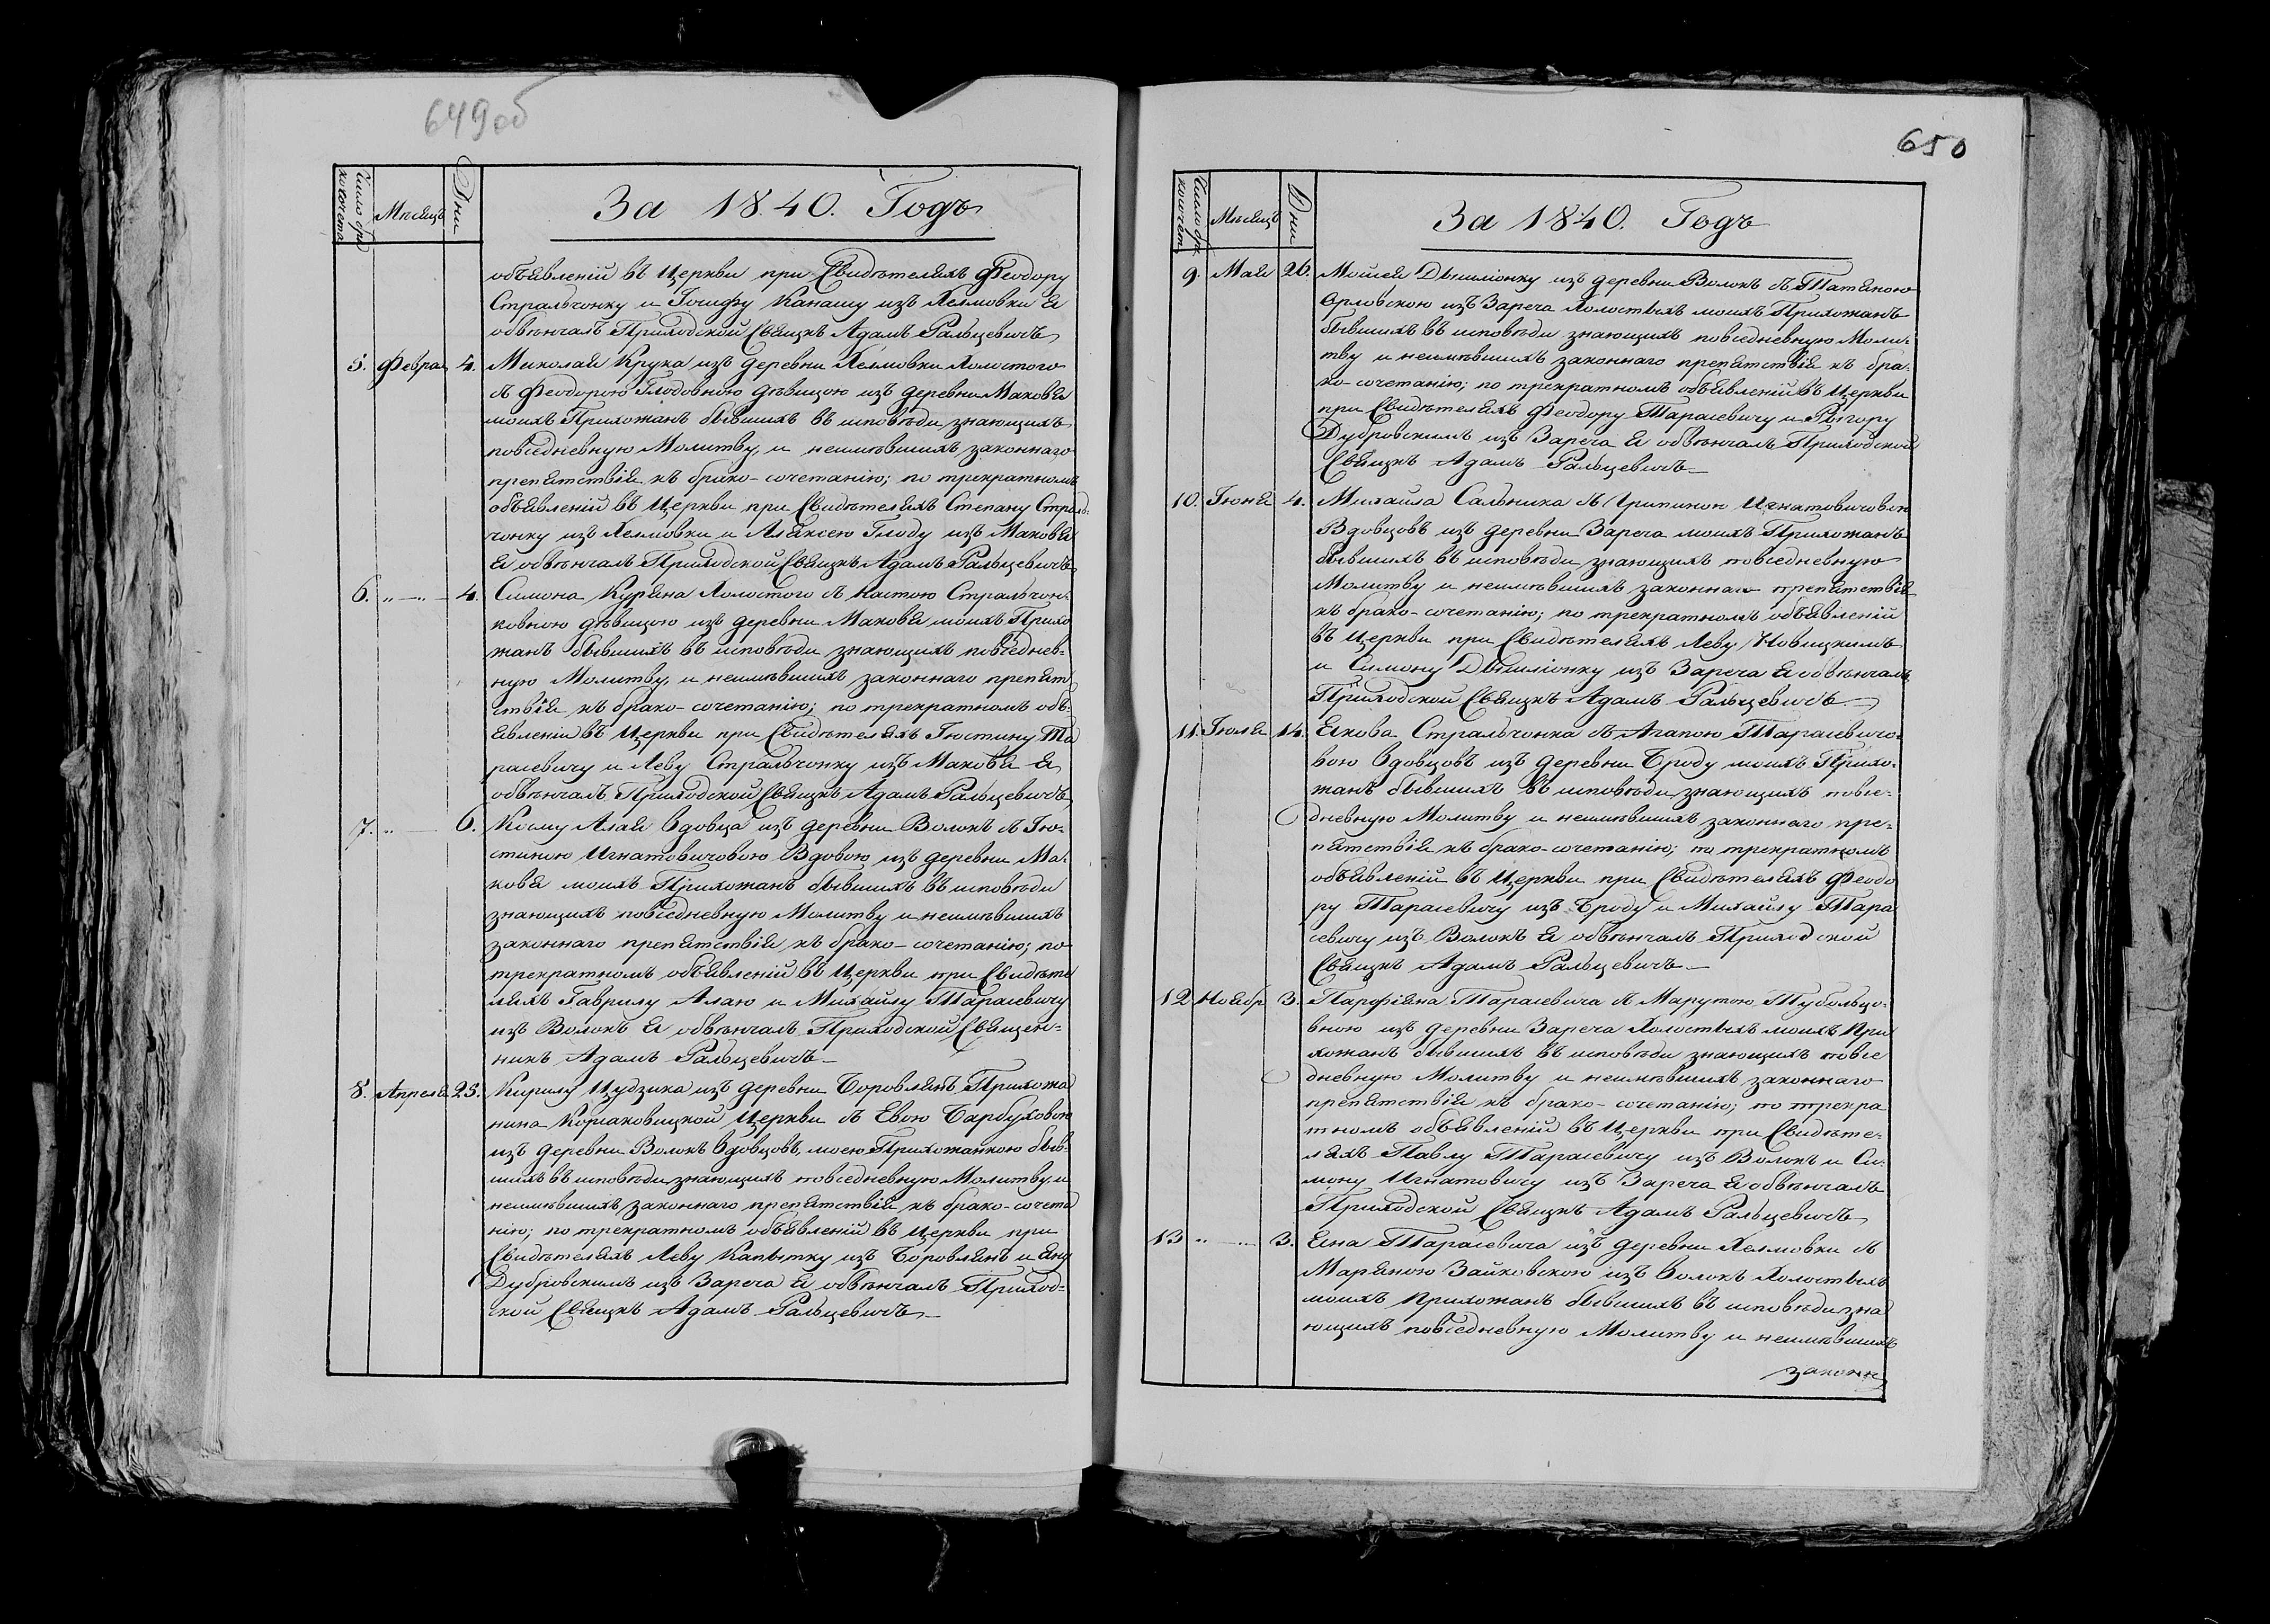 649об
Число бра
косочета
Мѣсяцъ
Дни
За 1840. Годъ
объявленій въ Церкви при Свидѣтеляхъ Феодору
Стральчонку и Іосифу Канашу изъ Хелмовки я
обвѣнчалъ Приходской Свящкъ Адамъ Ральцевичъ
5. Феврал 4. Миколая Крука изъ деревни Хелмовки холостого
съ Феодорою Глодовною дѣвицою изъ деревни Маковя
моихъ Прихожанъ бывшихъ въ исповѣди знающихъ
повседневную Молитву, и неимѣвшихъ законнаго
препятствія къ брако-сочетанію; по трекратномъ
объявленій въ Церкви при Свидѣтеляхъ Степану Страль
чонку изъ Хелмовки и Алексею Глоду изъ Маковя
я обвѣнчалъ Приходской Свящкъ Адамъ Ральцевичъ
6. " — " — 4. Симона Куряна холостого съ Настою Стральчон-
ковною дѣвицою изъ деревни Маковя моихъ Прихо
жанъ бывшихъ въ исповѣди знающихъ повседнев-
ную Молитву, и неимѣвшихъ законнаго препят
ствія къ брако-сочетанію; по трекратномъ объ-
явленіи въ Церкви при Свидѣтеляхъ Іюстину Та
расевичу и Леву Стральчонку изъ Маковя я
обвѣнчалъ Приходской Свящкъ Адамъ Ральцевичъ
7. " — 6. Косму Алая вдовца изъ деревни Волокъ съ Iю-
стиною Игнатовичовою Вдовою изъ деревни Ма-
ковя моихъ Прихожанъ бывшихъ въ исповѣди
знающихъ повседневную Молитву и неимѣвшихъ
законнаго препятствія къ брако-сочетанію; по
трекратномъ объявленій въ Церкви при Свидѣте
ляхъ Гаврилу Алаю и Михайлу Тарасевичу
изъ Волокъ я обвѣнчалъ Приходской Священ-
никъ Адамъ Ральцевичъ —
8. Апреля 23. Кирилу Цудзика изъ деревни Боровлянъ Прихожа
нина Корсаковицкой Церкви съ Евою Барбуховою
изъ деревни Волокъ вдовцовъ, моею Прихожанкою быв-
шихъ въ исповѣди знающихъ повседневную Молитву, и
неимѣвшихъ законнаго препятствій къ брако-сочета
нію; по трекратномъ объявленій въ Церкви при
Свидѣтеляхъ Леву Капытку изъ Боровлянъ и Яну
Дубровскимъ изъ Зареча я обвѣнчалъ Приход-
ской Свящкъ Адамъ Ральцевичъ —
650
Число бра
косочет
Мѣсяцъ
Дни
За 1840. Годъ
9. Мая 26. Моисея Дышлюнку изъ деревни Волокъ съ Татяною
Арловскою изъ Зареча холостыхъ моихъ Прихожанъ
бывшихъ въ исповѣди знающихъ повседневную Моли-
тву и неимѣвшихъ законнаго препятствія къ бра-
ко-сочетанію; по трекратномъ объявленій въ Церкви
при Свидѣтеляхъ Феодору Тарасевичу и Рыгору
Дубровскимъ изъ Зареча я обвѣнчалъ Приходской
Свящкъ Адамъ Ральцевичъ —
10. Іюня 4. Михаила Сальника съ Грипиною Игнатовичовою
Вдовцовъ изъ деревни Зареча моихъ Прихожанъ
бывшихъ въ исповѣди знающихъ повседневную
Молитву и неимѣвшихъ законнаго препятствія
къ брако-сочетанію; по трекратномъ объявленій
въ Церкви при Свидѣтеляхъ Леву Новицкимъ
и Симону Дышлюнку изъ Зареча я обвѣнчалъ
Приходской Свящкъ Адамъ Ральцевичъ —
11. Іюля 14. Якова Стральчонка съ Агапою Тарасевичо-
вою вдовцовъ изъ деревни Броду моихъ Прихо-
жанъ бывшихъ въ исповѣди знающихъ повсе-
дневную Молитву и неимѣвшихъ законнаго пре-
пятствія къ брако-сочетанію; по трекратномъ
объявленій въ Церкви при Свидѣтеляхъ Феодо
ру Тарасевичу изъ Броду и Михайлу Тара
севичу изъ Волокъ я обвѣнчалъ Приходской
Свящкъ Адамъ Ральцевичъ —
12 Ноябр 3. Парфіяна Тарасевича съ Марутою Тубольцо-
вною изъ деревни Зареча Холостыхъ моихъ При
хожанъ бывшихъ въ исповѣди знающихъ повсе
дневную Молитву и неимѣвшихъ законнаго
препятствія къ брако-сочетанію; по трекра
тномъ объявленій въ Церкви при Свидѣте-
ляхъ Павлу Тарасевичу изъ Волокъ и Си-
мону Игнатовичу изъ Зареча я обвѣнчалъ
Приходской Свящкъ Адамъ Ральцевичъ
13 " — " 3. Яна Тарасевича изъ деревни Хелмовки съ
Маряною Зайковскою изъ Волокъ Холостыхъ
моихъ Прихожанъ бывшихъ въ исповѣди зна
ющихъ повседневную Молитву и неимѣвшихъ
законн